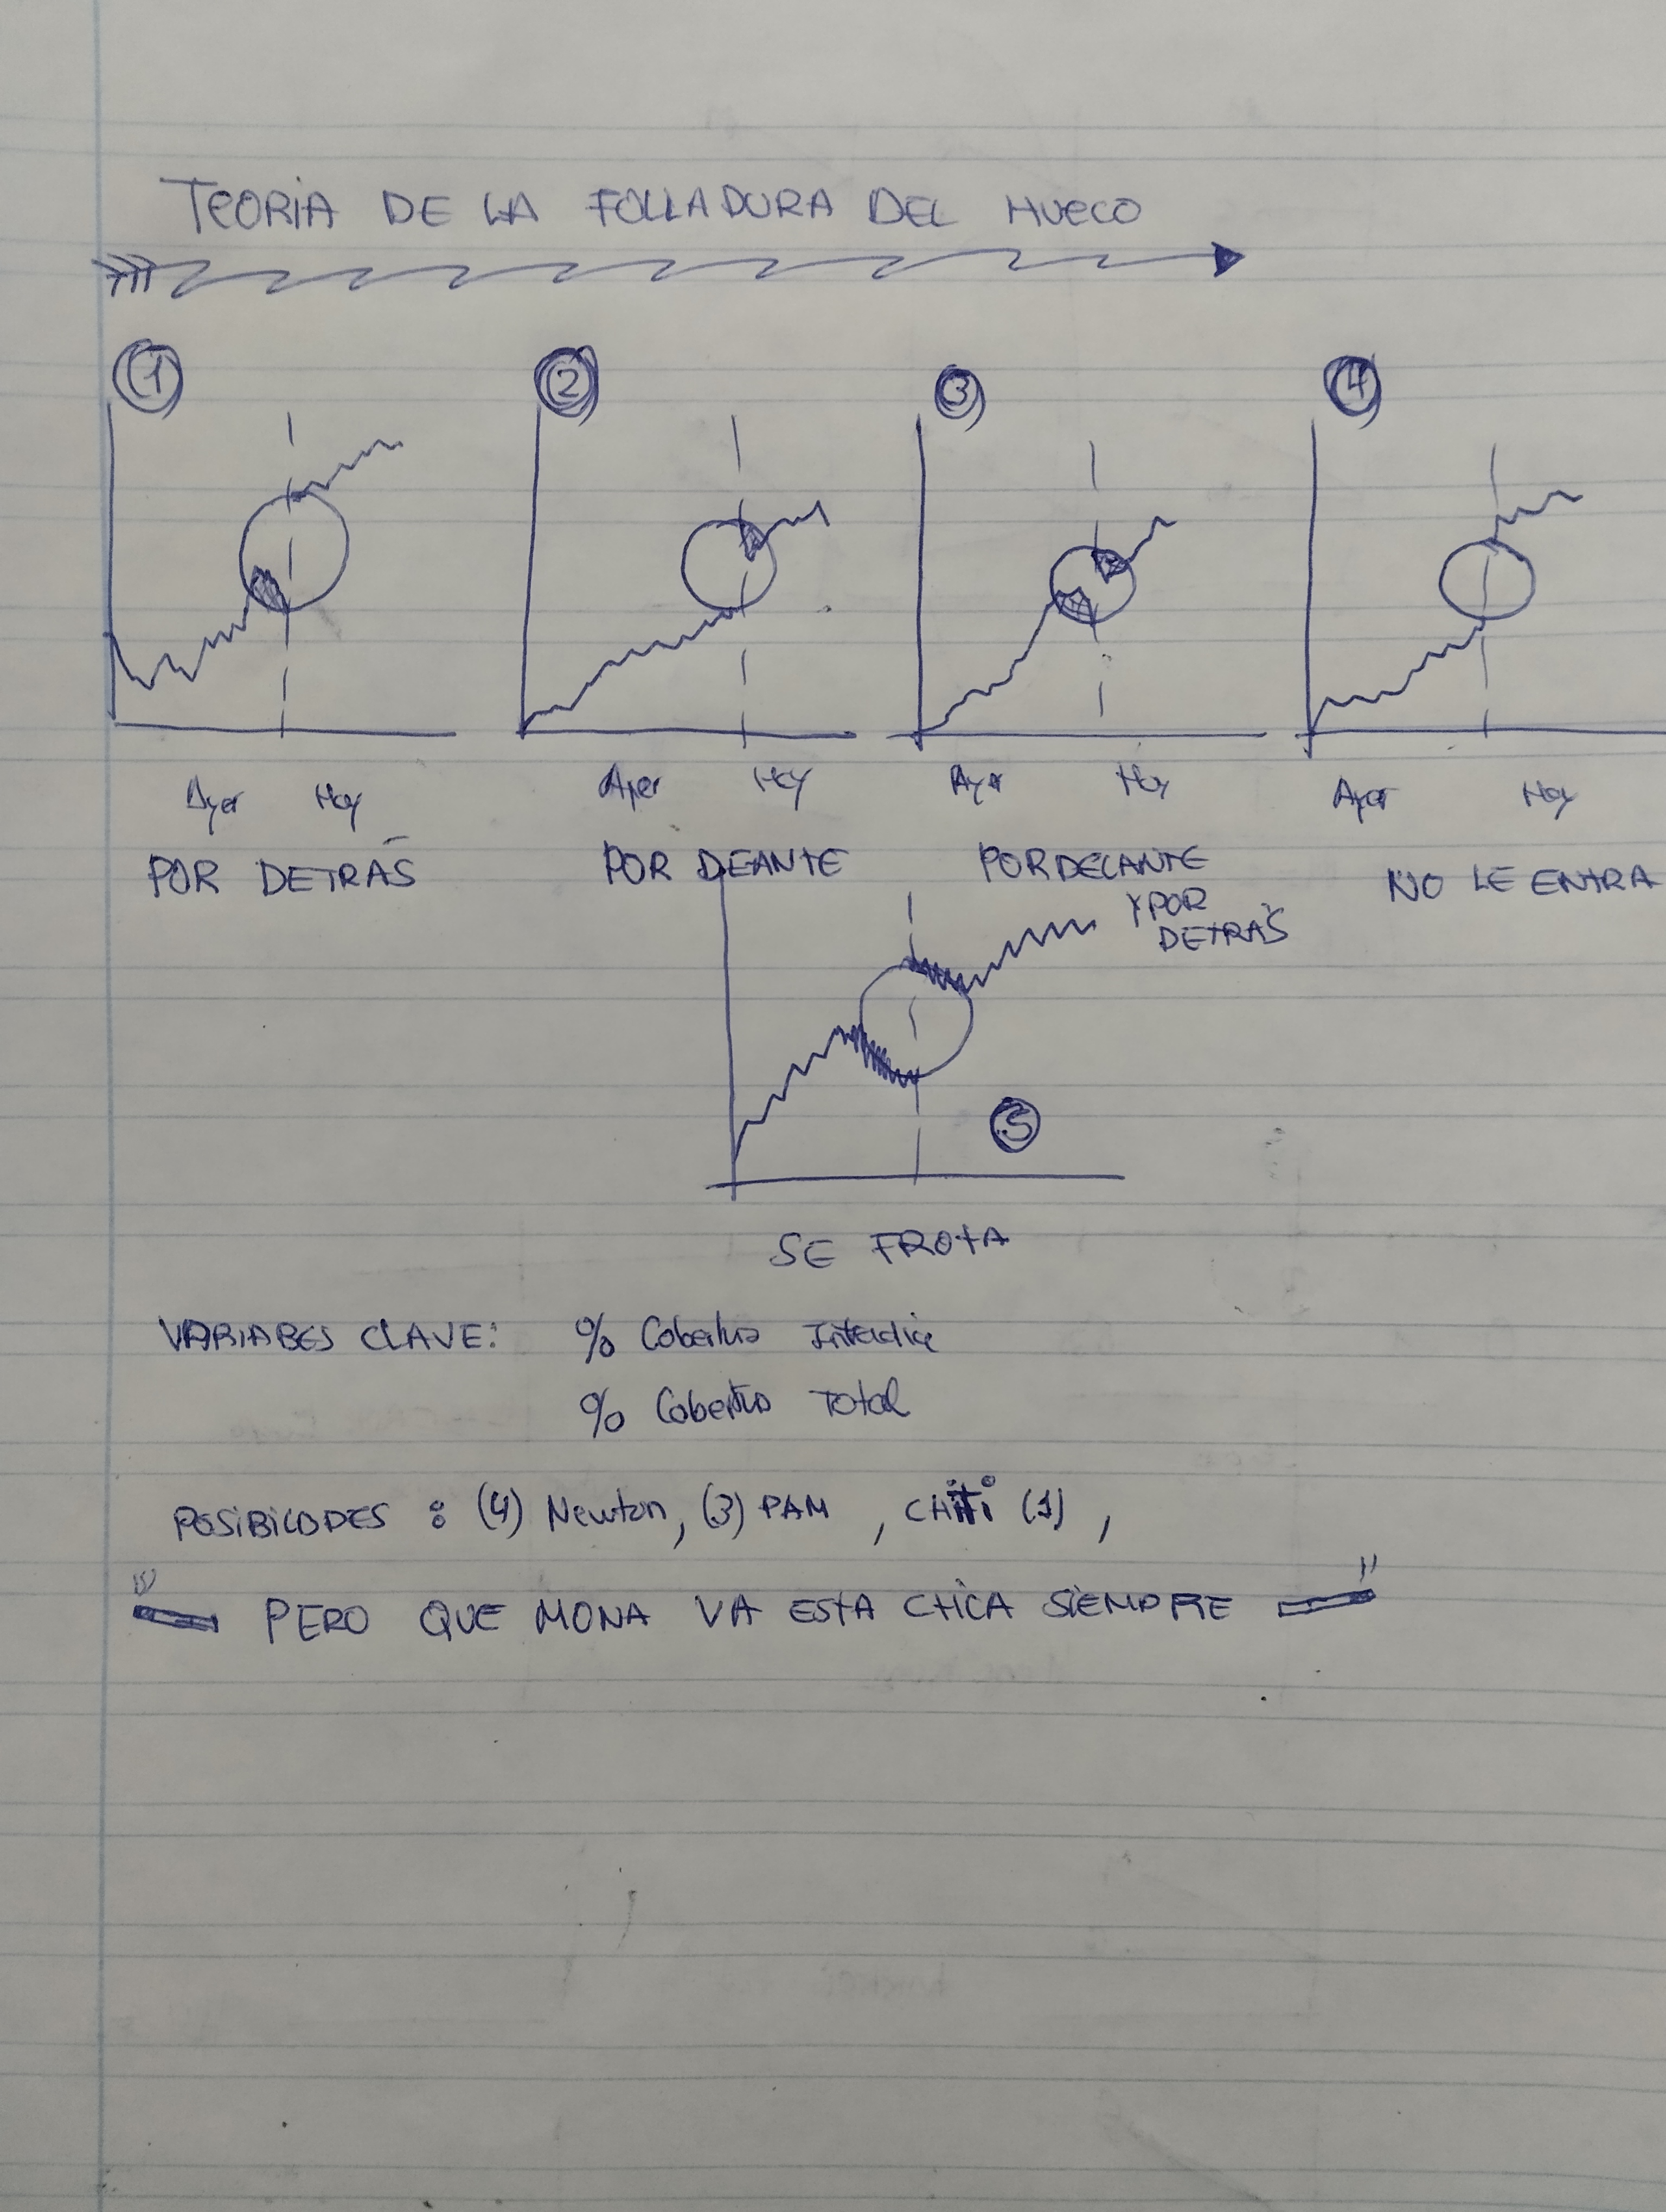 TEORÍA DE LA FOLLADURA DEL HUECO
1 2 3 4
Ayer Hoy Ayer Hoy Ayer Hoy Ayer Hoy
POR DETRÁS POR DEANTE POR DELANTE Y POR DETRÁS NO LE ENTRA
5
SE FROTA
VARIABES CLAVE: % Cobertura Intradía
% Cobertura Total
POSIBILIDADES : (4) Newton, (3) PAM , CHITI (1) ,
" PERO QUE MONA VA ESTA CHICA SIEMPRE "